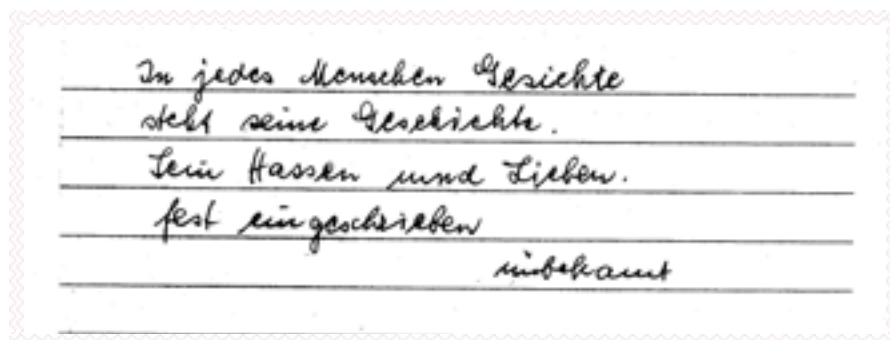 In jedes Menschen Gesichte
steht seine Geschichte.
Sein Hassen und Lieben.
fest eingeschrieben
unbekannt